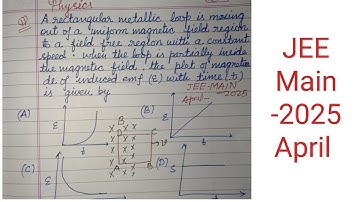 Physics
Q) A rectangular metallic loop is moving
out of a uniform magnetic field region
to a field free region with a constant
speed. when the loop is partially inside
the magnetic field, the plot of magnetic
de of induced emf (ε) with time (t)
is given by
JEE-MAIN
April-2025
(A)
ε
t
(B)
ε
t
B
D
C
A
B
v
(C)
ε
t
(D)
t
JEE
Main
-2025
April